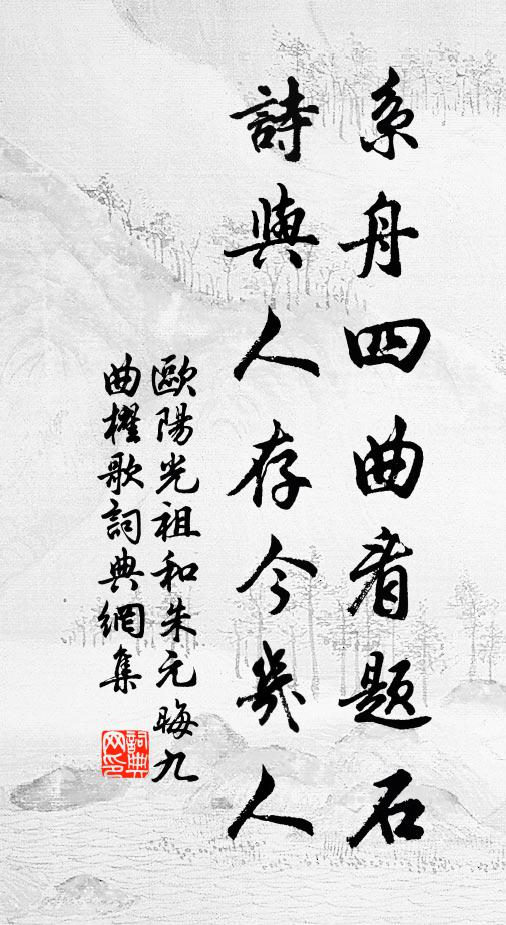 系舟四曲看题石
詩與人存今幾人
歐陽光祖和朱元晦九
曲櫂歌詞典網集
詞典网印